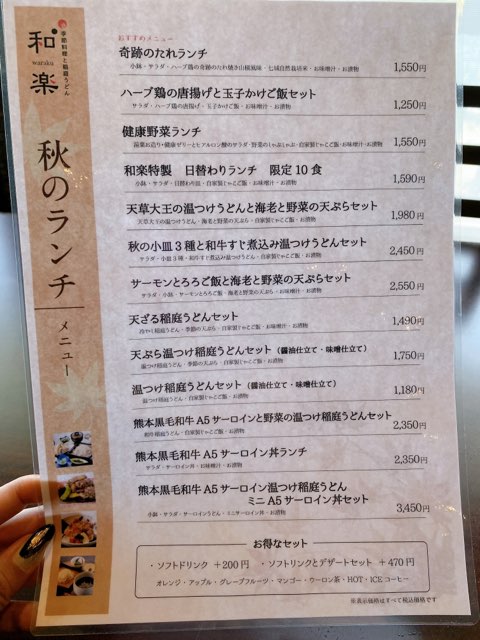 季節料理と稲庭うどん
和楽
waraku
秋のランチ
メニュー
おすすめメニュー
奇跡のたれランチ
小鉢・サラダ・ハーブ鶏の奇跡のたれ焼き山椒風味・七城自然栽培米・お味噌汁・お漬物
1,550円
ハーブ鶏の唐揚げと玉子かけご飯セット
サラダ・ハーブ鶏の唐揚げ・玉子かけご飯・お味噌汁・お漬物
1,250円
健康野菜ランチ
湯葉お造り・健康ゼリーとヒアルロン酸のサラダ・野菜のしゃぶしゃぶ・自家製じゃこご飯・お味噌汁・お漬物
1,550円
和楽特製 日替わりランチ 限定10食
小鉢・サラダ・日替わり皿・自家製じゃこご飯・お味噌汁・お漬物
1,590円
天草大王の温つけうどんと海老と野菜の天ぷらセット
天草大王の温つけうどん・海老と野菜の天ぷら・自家製じゃこご飯・お漬物
1,980円
秋の小皿3種と和牛すじ煮込み温つけうどんセット
サラダ・小皿3種・和牛すじ煮込み温つけうどん・自家製じゃこご飯・お漬物
2,450円
サーモンとろろご飯と海老と野菜の天ぷらセット
サラダ・小鉢・サーモンとろろご飯・海老と野菜の天ぷら・お味噌汁・お漬物
2,550円
天ざる稲庭うどんセット
冷やし稲庭うどん・季節の天ぷら・自家製じゃこご飯・お漬物
1,490円
天ぷら温つけ稲庭うどんセット（醤油仕立て・味噌仕立て）
温つけ稲庭うどん・季節の天ぷら・自家製じゃこご飯・お漬物
1,750円
温つけ稲庭うどんセット（醤油仕立て・味噌仕立て）
温つけ稲庭うどん・自家製じゃこご飯・お漬物
1,180円
熊本黒毛和牛A5サーロインと野菜の温つけ稲庭うどんセット
和牛稲庭うどん・自家製じゃこご飯・お漬物
2,350円
熊本黒毛和牛A5サーロイン丼ランチ
サラダ・サーロイン丼・お味噌汁・お漬物
2,350円
熊本黒毛和牛A5サーロイン温つけ稲庭うどん
ミニA5サーロイン丼セット
小鉢・サラダ・サーロインうどん・ミニサーロイン丼・お漬物
3,450円
お得なセット
・ソフトドリンク +200円 ・ソフトリンクとデザートセット +470円
オレンジ・アップル・グレープフルーツ・マンゴー・ウーロン茶・HOT・ICEコーヒー
※表示価格はすべて税込価格です